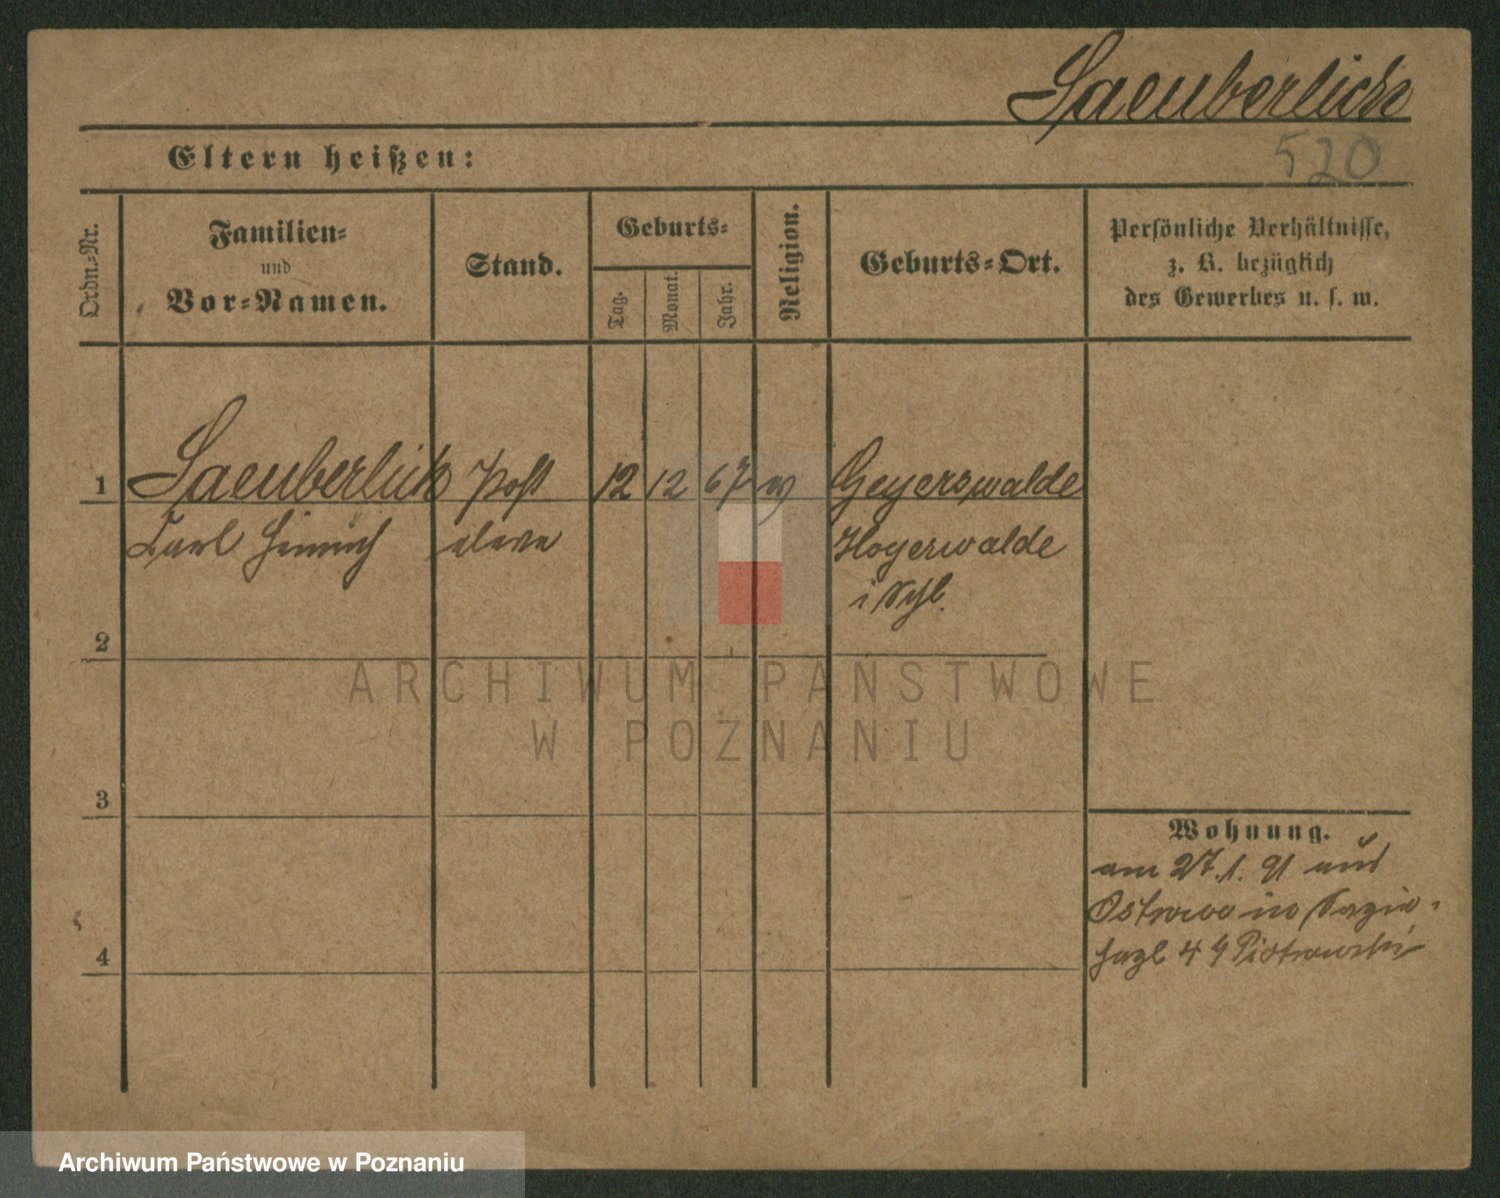 Saeuberlich
520
Eltern heißen:
Ordn.-Nr.
Familien-
und
Vor-Namen.
Stand.
Geburts-
Tag.
Monat.
Jahr.
Religion.
Geburts-Ort.
Persönliche Verhältnisse,
z. B. bezüglich
des Gewerbes u. s. w.
1 Saeuberlich Post 12 12 67 Geyerswalde
Carl Heinrich eleve Hoyerwalde
i Schl.
2
ARCHIWUM PAŃSTWOWE
W POZNANIU
3
Wohnung.
am 27.1.91 aus
Ostrowo in
4 4 Piotrowski
4
Archiwum Państwowe w Poznaniu